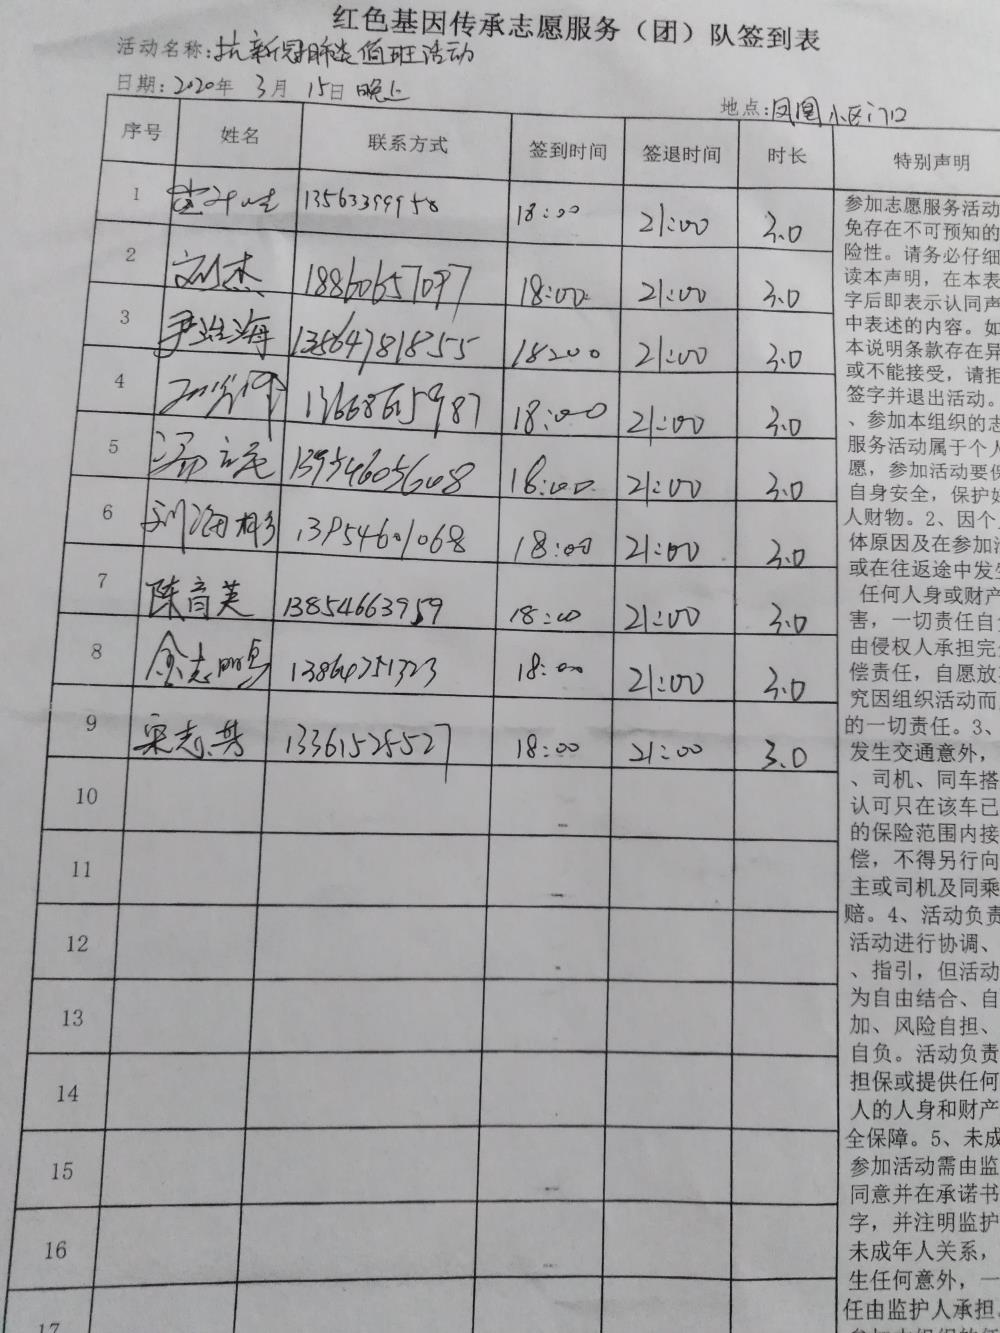 红色基因传承志愿服务（团）队签到表
活动名称:抗新冠肺炎值班活动
日期: 2020年 3月 15日 晚上
地点:凤凰小区门口
序号 姓名 联系方式 签到时间 签退时间 时长 特别声明
1 13563399958 18:00 21:00 3.0
2 刘杰 18860657097 18:00 21:00 3.0
3 尹海 13864781855 18:00 21:00 3.0
4 13668615987 18:00 21:00 3.0
5 冯立民 13954605608 18:00 21:00 3.0
6 刘海彬 13954601068 18:00 21:00 3.0
7 陈育英 13854663959 18:00 21:00 3.0
8 金志明 13864251323 18:00 21:00 3.0
9 宋志英 13361525527 18:00 21:00 3.0
10
11
12
13
14
15
16
17
参加志愿服务活动
免存在不可预知的
险性。请务必仔细
读本声明，在本表
字后即表示认同声
中表述的内容。如
本说明条款存在异
或不能接受，请拒
签字并退出活动。
、参加本组织的志
服务活动属于个人
愿，参加活动要保
自身安全，保护好
人财物。2、因个
体原因及在参加活
或在往返途中发生
任何人身或财产
害，一切责任自
由侵权人承担完
偿责任，自愿放
究因组织活动而
的一切责任。3、
发生交通意外，
、司机、同车搭
认可只在该车已
的保险范围内接
偿，不得另行向
主或司机及同乘
赔。4、活动负责
活动进行协调、
、指引，但活动
为自由结合、自
加、风险自担、
自负。活动负责
担保或提供任何
人的人身和财产
全保障。5、未成
参加活动需由监
同意并在承诺书
字，并注明监护
未成年人关系，
生任何意外，一
任由监护人承担。